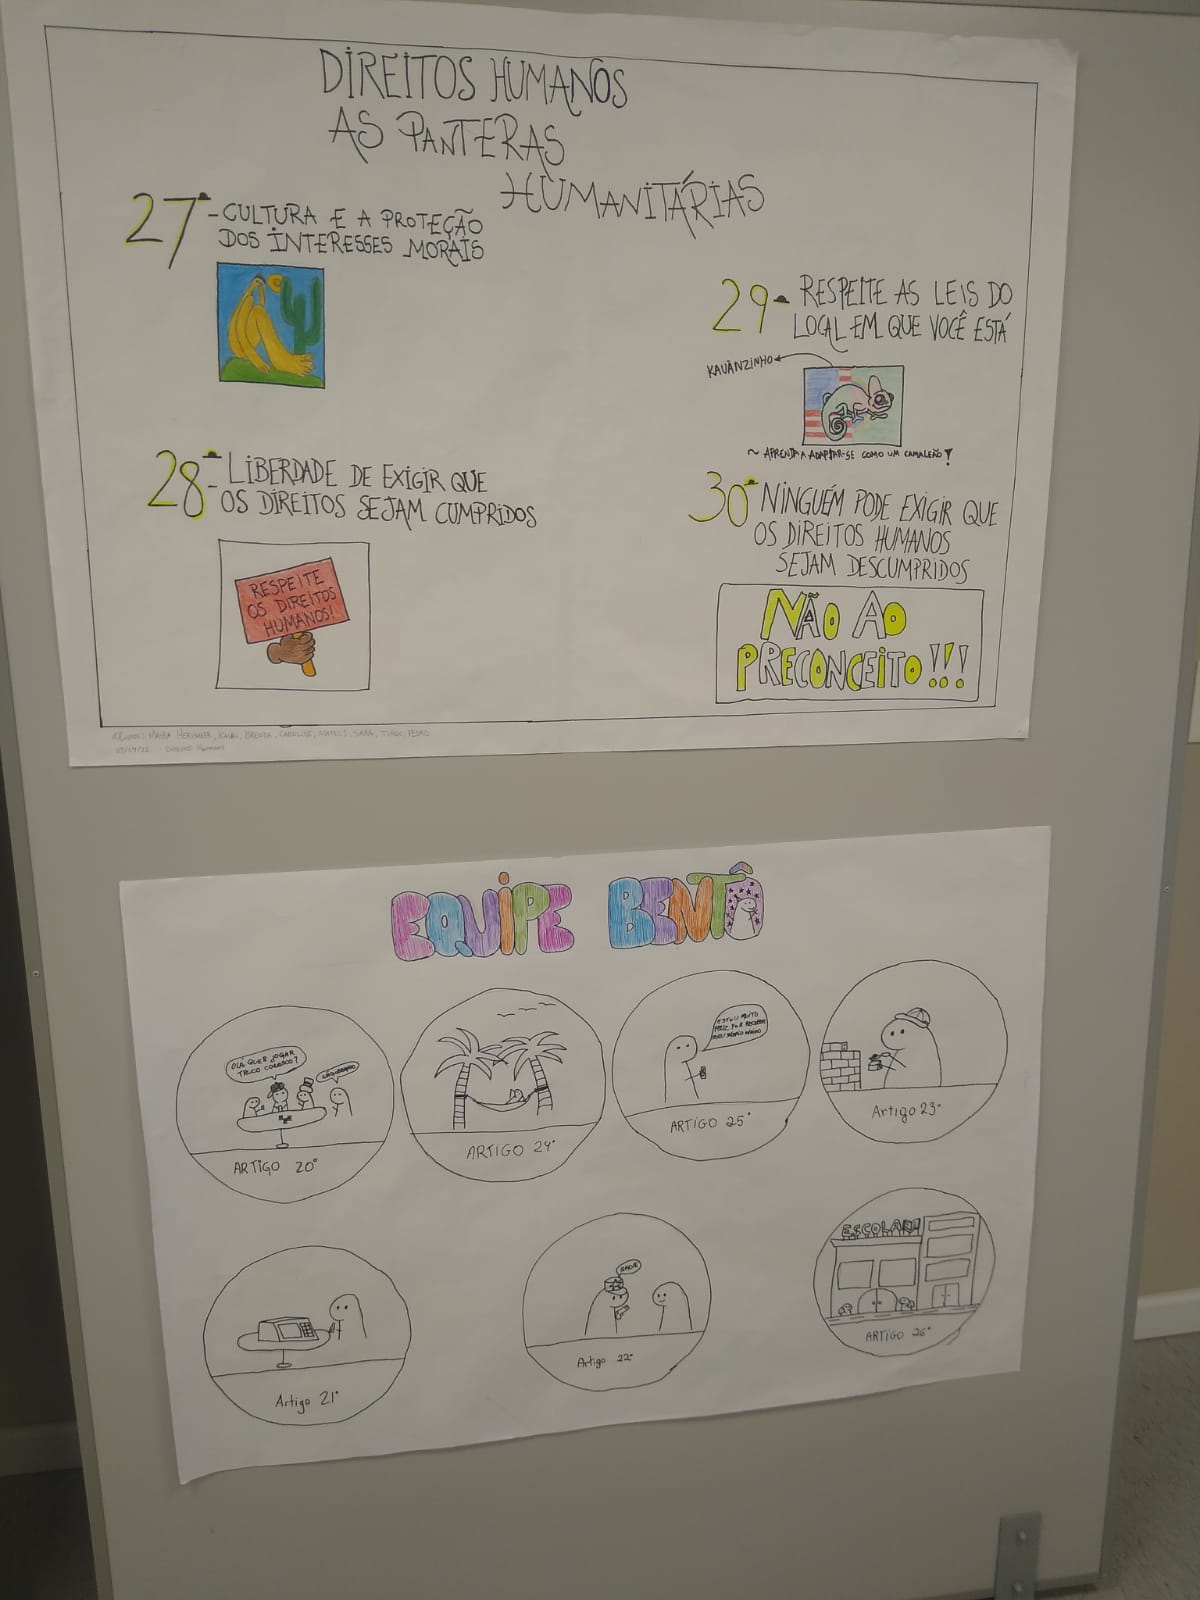 DIREITOS HUMANOS
AS PANTERAS
HUMANITÁRIAS
27º - CULTURA E A PROTEÇÃO
DOS INTERESSES MORAIS
28º - LIBERDADE DE EXIGIR QUE
OS DIREITOS SEJAM CUMPRIDOS
RESPEITE
OS DIREITOS
HUMANOS!
29º RESPEITE AS LEIS DO
LOCAL EM QUE VOCÊ ESTÁ
KAUÃNZINHO
~ APRENDA A ADAPTAR-SE COMO UM CAMALEÃO!
30º NINGUÉM PODE EXIGIR QUE
OS DIREITOS HUMANOS
SEJAM DESCUMPRIDOS
NÃO AO
PRECONCEITO!!!
ALUNOS: MAIRA HERINGER, KAUÃ, BRENDA, MATEUS, SARA, TIAGO, PEDRO
Direitos Humanos
EQUIPE BENTÔ
OLÁ QUER JOGAR
TRUCO CONOSCO?
NÃO OBRIGADO
ARTIGO 20º
ARTIGO 24º
ESTOU MUITO
FELIZ POR RECEBER
MEU
ARTIGO 25º
Artigo 23º
Artigo 21º
Artigo 22º
ESCOLA
ARTIGO 26º